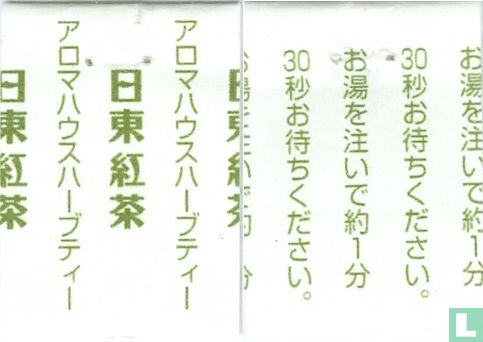 日東紅茶
アロマハウスハーブティー
日東紅茶
アロマハウスハーブティー
日東紅茶
お湯を注いで約1分
30秒お待ちください。
お湯を注いで約1分
30秒お待ちください。
お湯を注いで約
L